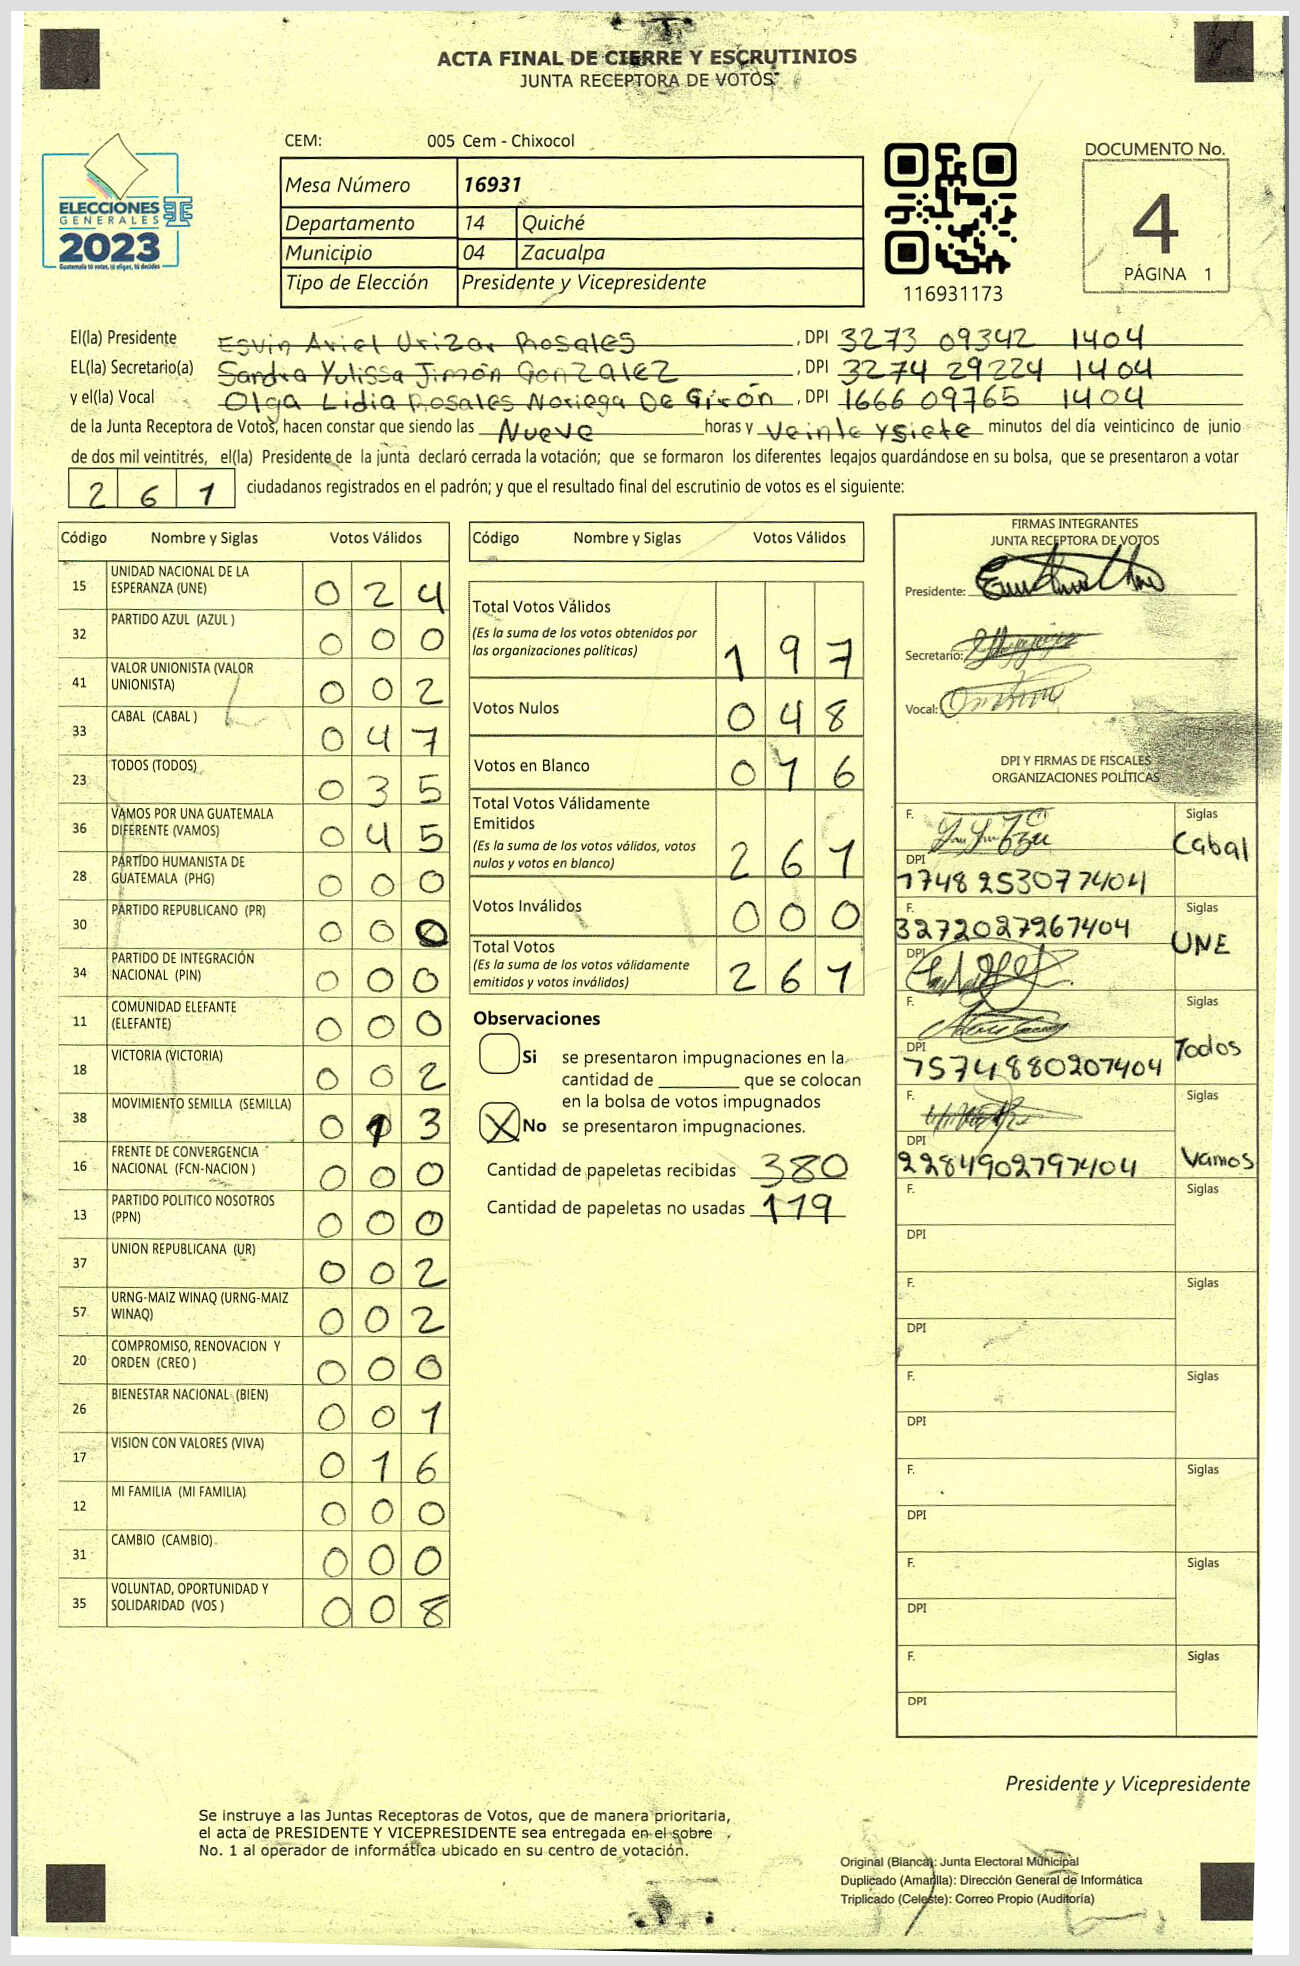 ACTA FINAL DE CIERRE Y ESCRUTINIOS
JUNTA RECEPTORA DE VOTOS
CEM: 005 Cem - Chixocol
ELECCIONES
GENERALES
2023
Guatemala tú votas, tú eliges, tú decides
Mesa Número 16931
Departamento 14 Quiché
Municipio 04 Zacualpa
Tipo de Elección Presidente y Vicepresidente
116931173
DOCUMENTO No.
4
PÁGINA 1
El(la) Presidente Esvin Ariel Urizar Rosales, DPI 3273 09342 1404
EL(la) Secretario(a) Sandra Yulissa Jimón GonZalEZ, DPI 3274 29224 1404
y el(la) Vocal Olga Lidia Rosales Noriega De Girón, DPI 1666 09765 1404
de la Junta Receptora de Votos, hacen constar que siendo las Nueve horas y veinte y siete minutos del día veinticinco de junio
de dos mil veintitrés, el(la) Presidente de la junta declaró cerrada la votación; que se formaron los diferentes legajos quardándose en su bolsa, que se presentaron a votar
261 ciudadanos registrados en el padrón; y que el resultado final del escrutinio de votos es el siguiente:
Código Nombre y Siglas Votos Válidos
15 UNIDAD NACIONAL DE LA ESPERANZA (UNE) 024
32 PARTIDO AZUL (AZUL ) 000
41 VALOR UNIONISTA (VALOR UNIONISTA) 002
33 CABAL (CABAL ) 047
23 TODOS (TODOS) 035
36 VAMOS POR UNA GUATEMALA DIFERENTE (VAMOS) 045
28 PARTIDO HUMANISTA DE GUATEMALA (PHG) 000
30 PARTIDO REPUBLICANO (PR) 000
34 PARTIDO DE INTEGRACIÓN NACIONAL (PIN) 000
11 COMUNIDAD ELEFANTE (ELEFANTE) 000
18 VICTORIA (VICTORIA) 002
38 MOVIMIENTO SEMILLA (SEMILLA) 013
16 FRENTE DE CONVERGENCIA NACIONAL (FCN-NACION ) 000
13 PARTIDO POLITICO NOSOTROS (PPN) 000
37 UNION REPUBLICANA (UR) 002
57 URNG-MAIZ WINAQ (URNG-MAIZ WINAQ) 002
20 COMPROMISO, RENOVACION Y ORDEN (CREO ) 000
26 BIENESTAR NACIONAL (BIEN) 001
17 VISION CON VALORES (VIVA) 016
12 MI FAMILIA (MI FAMILIA) 000
31 CAMBIO (CAMBIO) 000
35 VOLUNTAD, OPORTUNIDAD Y SOLIDARIDAD (VOS ) 008
Código Nombre y Siglas Votos Válidos
Total Votos Válidos
(Es la suma de los votos obtenidos por
las organizaciones políticas) 197
Votos Nulos 048
Votos en Blanco 016
Total Votos Válidamente
Emitidos
(Es la suma de los votos válidos, votos
nulos y votos en blanco) 261
Votos Inválidos 000
Total Votos
(Es la suma de los votos válidamente
emitidos y votos inválidos) 261
Observaciones
Si se presentaron impugnaciones en la
cantidad de ________ que se colocan
en la bolsa de votos impugnados
X No se presentaron impugnaciones.
Cantidad de papeletas recibidas 380
Cantidad de papeletas no usadas 119
FIRMAS INTEGRANTES
JUNTA RECEPTORA DE VOTOS
Presidente:
Secretario:
Vocal:
DPI Y FIRMAS DE FISCALES
ORGANIZACIONES POLÍTICAS
F. Siglas Cabal
DPI 1748253071404
F. 3272027261404 Siglas UNE
DPI
F. Siglas Todos
DPI 1574880201404
F. Vamos
DPI 2284902791404
F. Siglas
DPI
F. Siglas
DPI
F. Siglas
DPI
F. Siglas
DPI
F. Siglas
DPI
F. Siglas
DPI
Presidente y Vicepresidente
Se instruye a las Juntas Receptoras de Votos, que de manera prioritaria,
el acta de PRESIDENTE Y VICEPRESIDENTE sea entregada en el sobre
No. 1 al operador de informática ubicado en su centro de votación.
Original (Blanca): Junta Electoral Municipal
Duplicado (Amarilla): Dirección General de Informática
Triplicado (Celeste): Correo Propio (Auditoría)